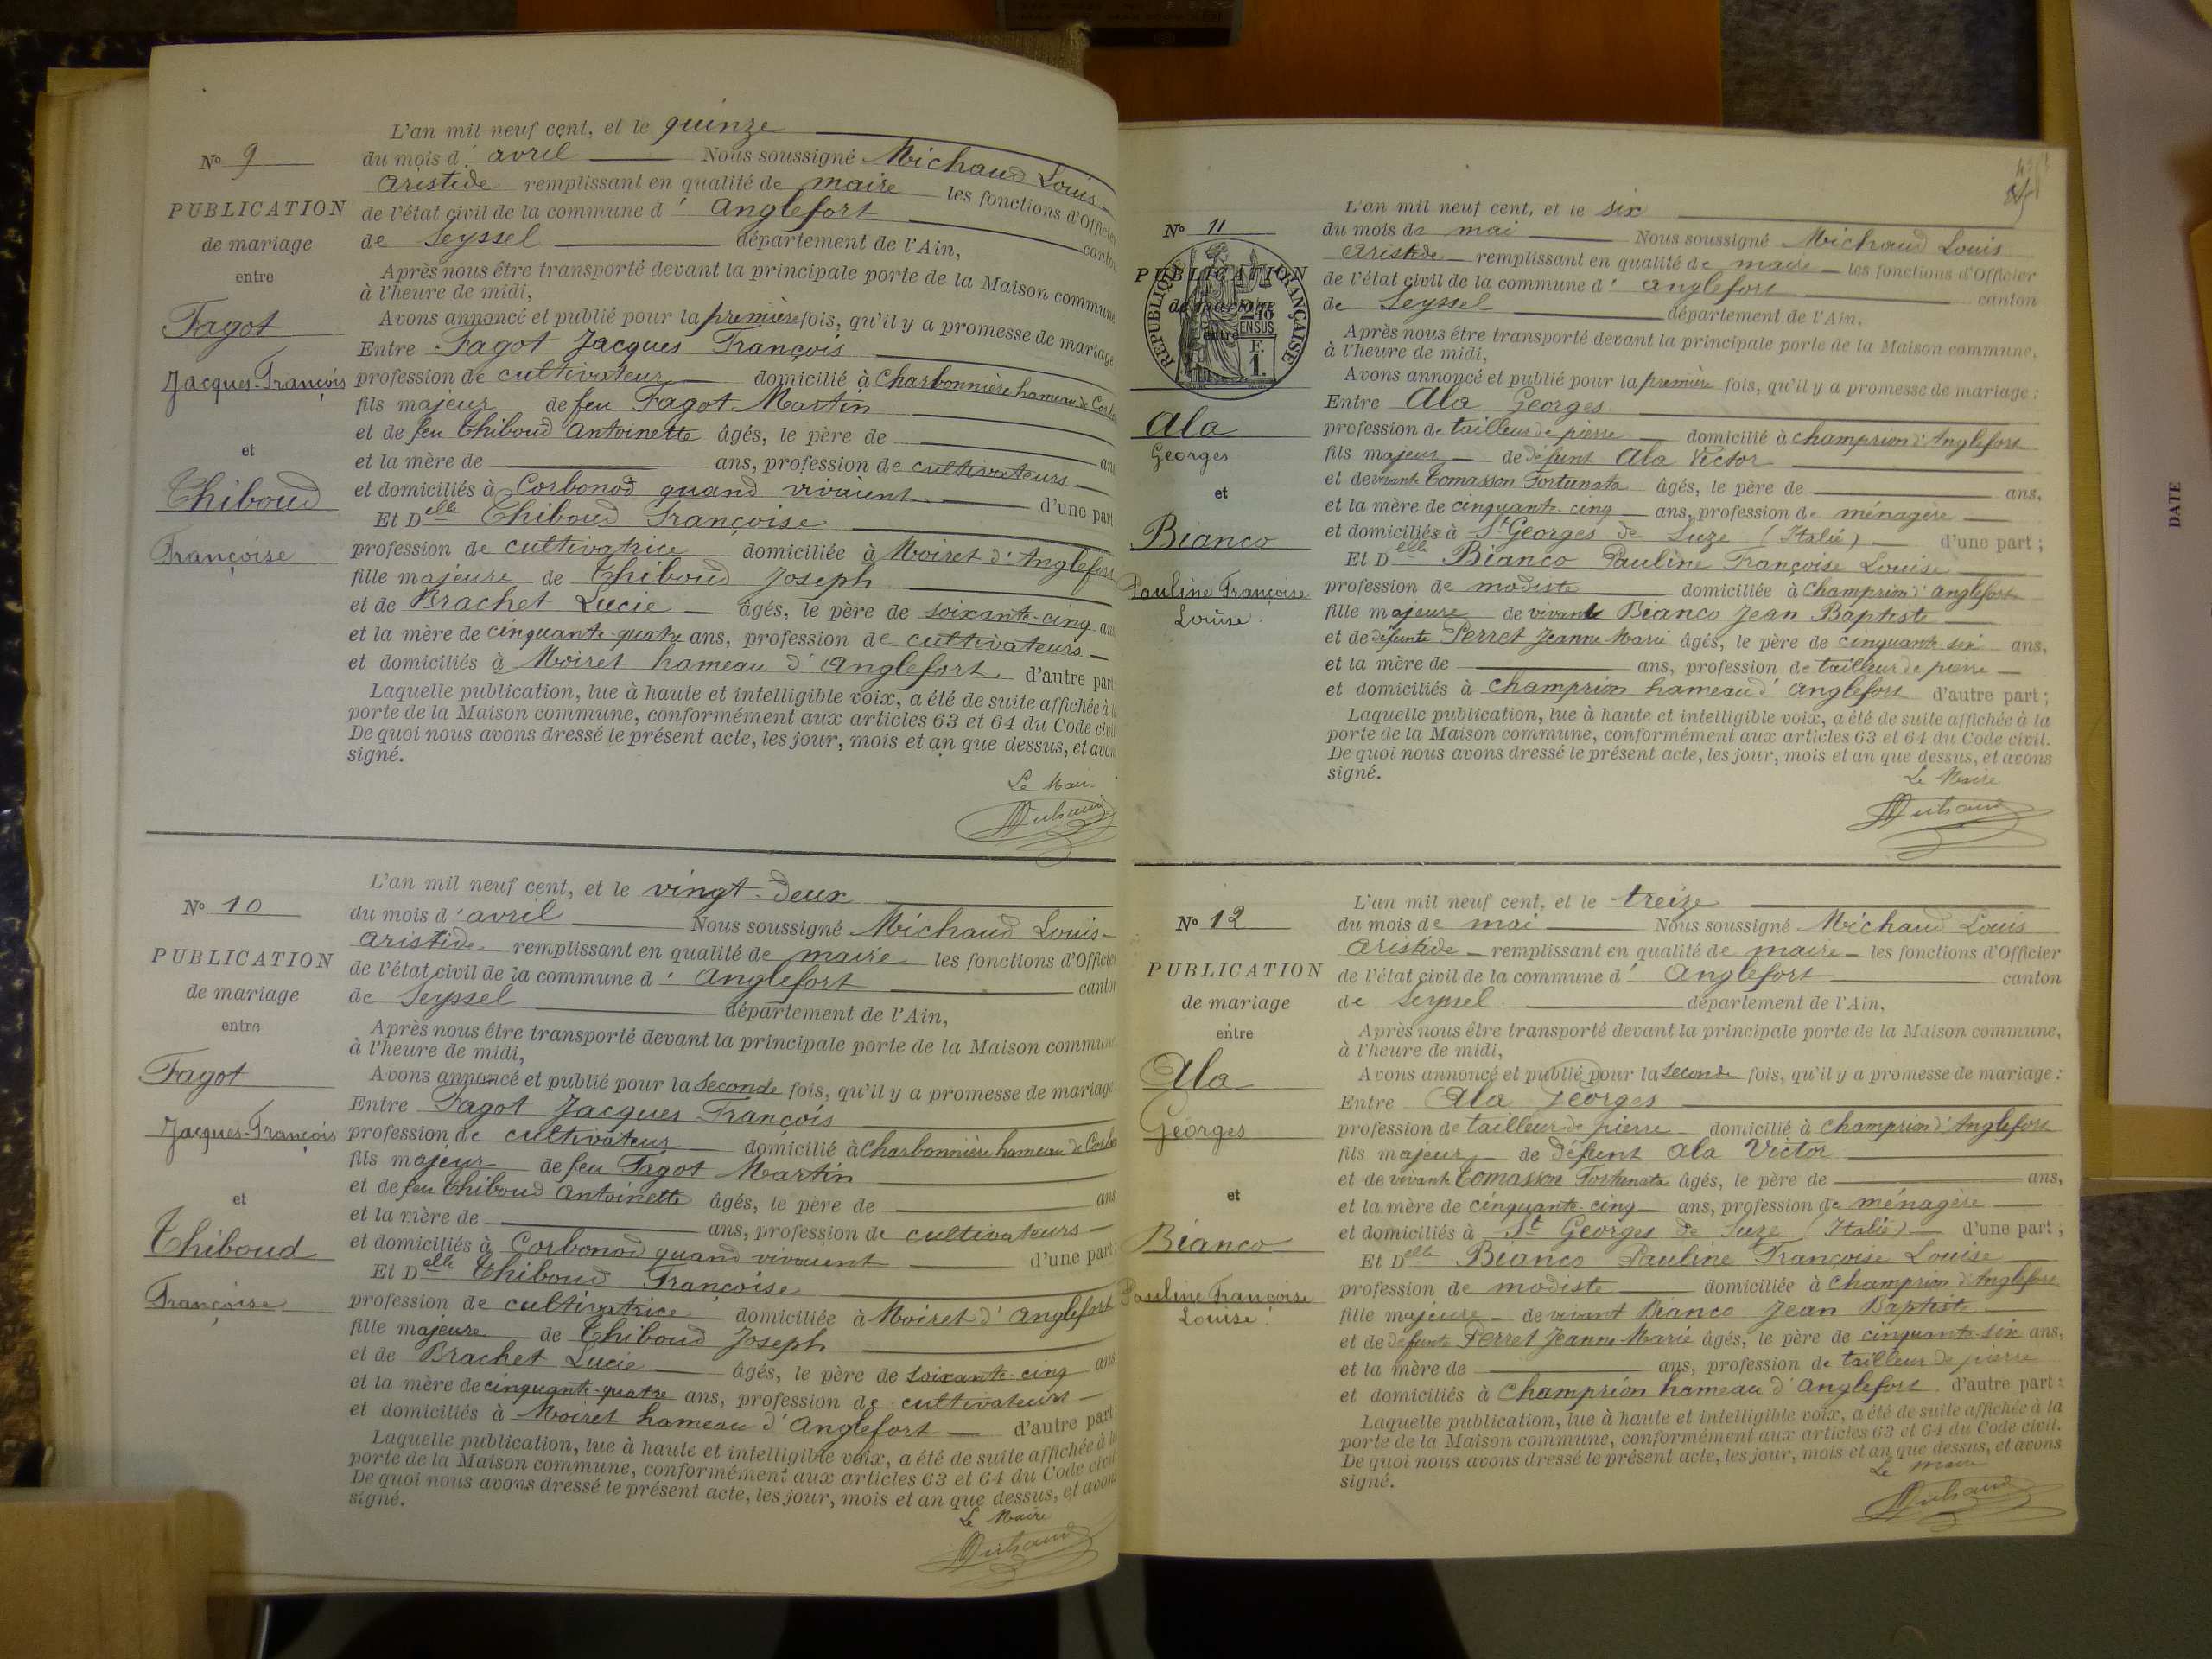 L'an mil neuf cent, et le quinze
Nº 9
du mois d' avril Nous soussigné Michaud Louis
Aristide remplissant en qualité de maire les fonctions d'Officier
PUBLICATION
de l'état civil de la commune d' Anglefort canton
de mariage
de Seyssel département de l'Ain,
entre
Après nous être transporté devant la principale porte de la Maison commune
à l'heure de midi,
Avons annoncé et publié pour la première fois, qu'il y a promesse de mariage
Fagot
Entre Fagot Jacques François
Jacques-François
profession de cultivateur domicilié à Charbonnière hameau de Corbo
fils majeur de feu Fagot Martin
et de feu Thiboud Antoinette âgés, le père de ans
et
et la mère de ans, profession de cultivateurs
Thiboud
et domiciliés à Corbonod quand vivaient d'une part
Et Delle Thiboud Françoise
Françoise
profession de cultivatrice domiciliée à Moiret d'Anglefort
fille majeure de Thiboud Joseph
et de Brachet Lucie âgés, le père de soixante-cinq ans
et la mère de cinquante-quatre ans, profession de cultivateurs
et domiciliés à Moiret hameau d'Anglefort. d'autre part
Laquelle publication, lue à haute et intelligible voix, a été de suite affichée à la
porte de la Maison commune, conformément aux articles 63 et 64 du Code civil
De quoi nous avons dressé le présent acte, les jour, mois et an que dessus, et avons
signé.
Le Maire
Michaud
L'an mil neuf cent, et le vingt-deux
Nº 10
du mois d' avril Nous soussigné Michaud Louis-
Aristide remplissant en qualité de maire les fonctions d'Officier
PUBLICATION
de l'état civil de la commune d' Anglefort canton
de mariage
de Seyssel département de l'Ain,
entre
Après nous être transporté devant la principale porte de la Maison commune
à l'heure de midi,
Fagot
Avons annoncé et publié pour la seconde fois, qu'il y a promesse de mariage
Entre Fagot Jacques François
Jacques-François
profession de cultivateur domicilié à Charbonnière hameau de Corbo
fils majeur de feu Fagot Martin
et de feu Thiboud Antoinette âgés, le père de ans
et
et la mère de ans, profession de cultivateurs
Thiboud
et domiciliés à Corbonod quand vivaient d'une part;
Et Delle Thiboud Françoise
Françoise
profession de cultivatrice domiciliée à Moiret d'Anglefort
fille majeure de Thiboud Joseph
et de Brachet Lucie âgés, le père de soixante-cinq ans
et la mère de cinquante-quatre ans, profession de cultivateurs
et domiciliés à Moiret hameau d'Anglefort d'autre part;
Laquelle publication, lue à haute et intelligible voix, a été de suite affichée à la
porte de la Maison commune, conformément aux articles 63 et 64 du Code civil
De quoi nous avons dressé le présent acte, les jour, mois et an que dessus, et avons
signé.
Le Maire
Michaud
L'an mil neuf cent, et le six
Nº 11
du mois de mai Nous soussigné Michaud Louis
Aristide remplissant en qualité de maire les fonctions d'Officier
PUBLICATION
de l'état civil de la commune d' Anglefort canton
de mariage
de Seyssel département de l'Ain,
entre
RÉPUBLIQUE FRANÇAISE
EN SUS
F.
1.
Après nous être transporté devant la principale porte de la Maison commune,
à l'heure de midi,
Avons annoncé et publié pour la première fois, qu'il y a promesse de mariage :
Entre Ala Georges
Ala
profession de tailleur de pierre domicilié à Champrion d'Anglefort
Georges
fils majeur de défunt Ala Victor
et
et de vivante Tomasson Fortunata âgés, le père de ans,
et la mère de cinquante-cinq ans, profession de ménagère
Bianco
et domiciliés à St Georges de Suze (Italie) d'une part ;
Et Delle Bianco Pauline Françoise Louise
Pauline Françoise
profession de modiste domiciliée à Champrion d'Anglefort
Louise.
fille majeure de vivant Bianco Jean Baptiste
et de défunte Perret Jeanne Marie âgés, le père de cinquante-six ans,
et la mère de ans, profession de tailleur de pierre
et domiciliés à Champrion hameau d'Anglefort d'autre part ;
Laquelle publication, lue à haute et intelligible voix, a été de suite affichée à la
porte de la Maison commune, conformément aux articles 63 et 64 du Code civil.
De quoi nous avons dressé le présent acte, les jour, mois et an que dessus, et avons
signé.
Le Maire
Michaud
L'an mil neuf cent, et le treize
Nº 12
du mois de mai Nous soussigné Michaud Louis
Aristide remplissant en qualité de maire les fonctions d'Officier
PUBLICATION
de l'état civil de la commune d' Anglefort canton
de mariage
de Seyssel département de l'Ain,
entre
Après nous être transporté devant la principale porte de la Maison commune,
à l'heure de midi,
Ala
Avons annoncé et publié pour la seconde fois, qu'il y a promesse de mariage :
Entre Ala Georges
Georges
profession de tailleur de pierre domicilié à Champrion d'Anglefort
fils majeur de défunt Ala Victor
et
et de vivante Tomasson Fortunata âgés, le père de ans,
et la mère de cinquante-cinq ans, profession de ménagère
Bianco
et domiciliés à St Georges de Suze (Italie) d'une part ;
Et Delle Bianco Pauline Françoise Louise
Pauline Françoise
profession de modiste domiciliée à Champrion d'Anglefort
Louise.
fille majeure de vivant Bianco Jean Baptiste
et de défunte Perret Jeanne Marie âgés, le père de cinquante-six ans,
et la mère de ans, profession de tailleur de pierre
et domiciliés à Champrion hameau d'Anglefort d'autre part :
Laquelle publication, lue à haute et intelligible voix, a été de suite affichée à la
porte de la Maison commune, conformément aux articles 63 et 64 du Code civil.
De quoi nous avons dressé le présent acte, les jour, mois et an que dessus, et avons
signé.
Le maire
Michaud
DATE